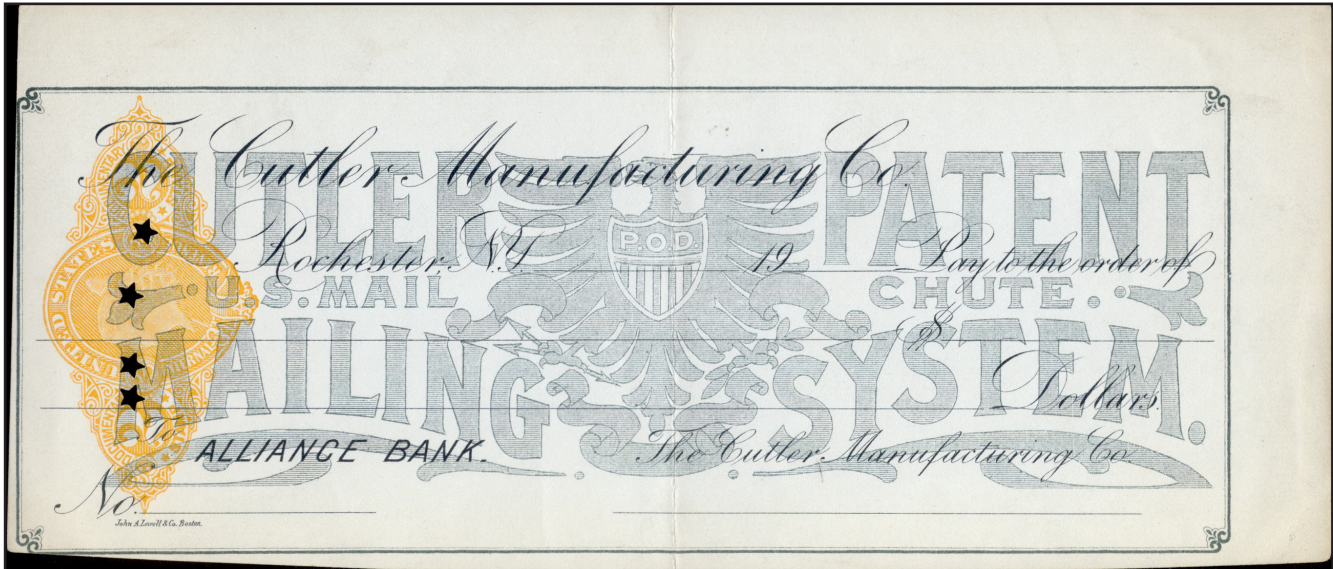 The Cutler Manufacturing Co.
CUTLER PATENT
Rochester, N.Y. 19 Pay to the order of
P.O.D.
U.S. MAIL CHUTE.
$
MAILING SYSTEM.
Dollars.
To
ALLIANCE BANK.
The Cutler Manufacturing Co.
No.
John A. Lowell & Co. Boston.
UNITED STATES